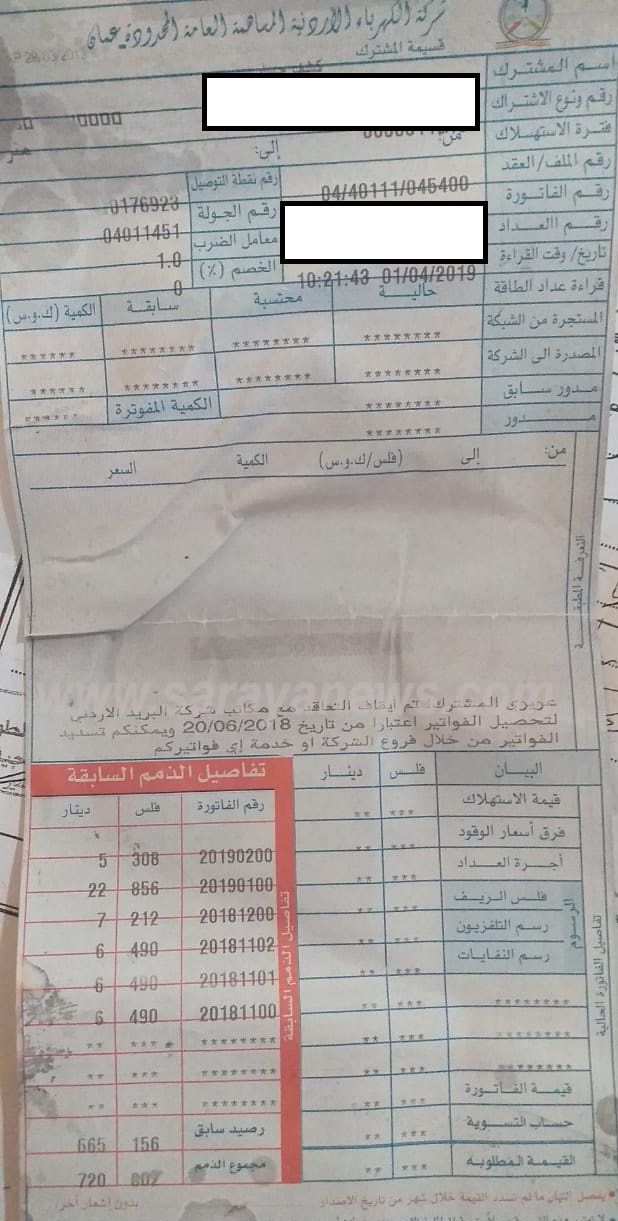 شركة الكهرباء الأردنية المساهمة العامة المحدودة عمان
قسيمة المشترك
اسم المشترك
رقم ونوع الاشتراك
فترة الاستهلاك من: إلى:
رقم الملف/العقد 04/40111/045400 رقم نقطة التوصيل 0176923
رقم الفاتورة رقم الجولة 04011451
رقم العداد معامل الضرب 1.0
تاريخ/ وقت القراءة 10:21:43 01/04/2019 الخصم (٪) 0
قراءة عداد الطاقة حالية محتسبة سابقة الكمية (ك.و.س)
المستجرة من الشبكة ******** ******** ******** ******
المصدرة الى الشركة ******** ******** ******** ******
مدور سابق ******** الكمية المفوترة ******
مدور ********
التعرفة المطبقة
من: إلى (فلس/ك.و.س) الكمية السعر
www.sarayanews.com
عزيزي المشترك: تم ايقاف التعاقد مع مكاتب شركة البريد الاردني
لتحصيل الفواتير اعتبارا من تاريخ 20/06/2018 ويمكنكم تسديد
الفواتير من خلال فروع الشركة او خدمة إي فواتيركم
تفاصيل الفاتورة الحالية
البيان فلس دينار
قيمة الاستهلاك *** **
فرق أسعار الوقود *** **
أجرة العداد *** **
الرسوم
فلس الريف *** **
رسم التلفزيون *** **
رسم النفايات *** **
******** *** **
******** *** **
******** *** **
قيمة الفاتورة *** **
حساب التسوية *** **
القيمة المطلوبة *** **
تفاصيل الذمم السابقة
تفاصيل الذمم السابقة
رقم الفاتورة فلس دينار
20190200 308 5
20190100 856 22
20181200 212 7
20181102 490 6
20181101 490 6
20181100 490 6
******** *** **
******** *** **
******** *** **
رصيد سابق 156 665
مجموع الذمم 002 720
يفصل التيار ما لم تسدد القيمة خلال شهر من تاريخ الاصدار بدون إشعار آخر